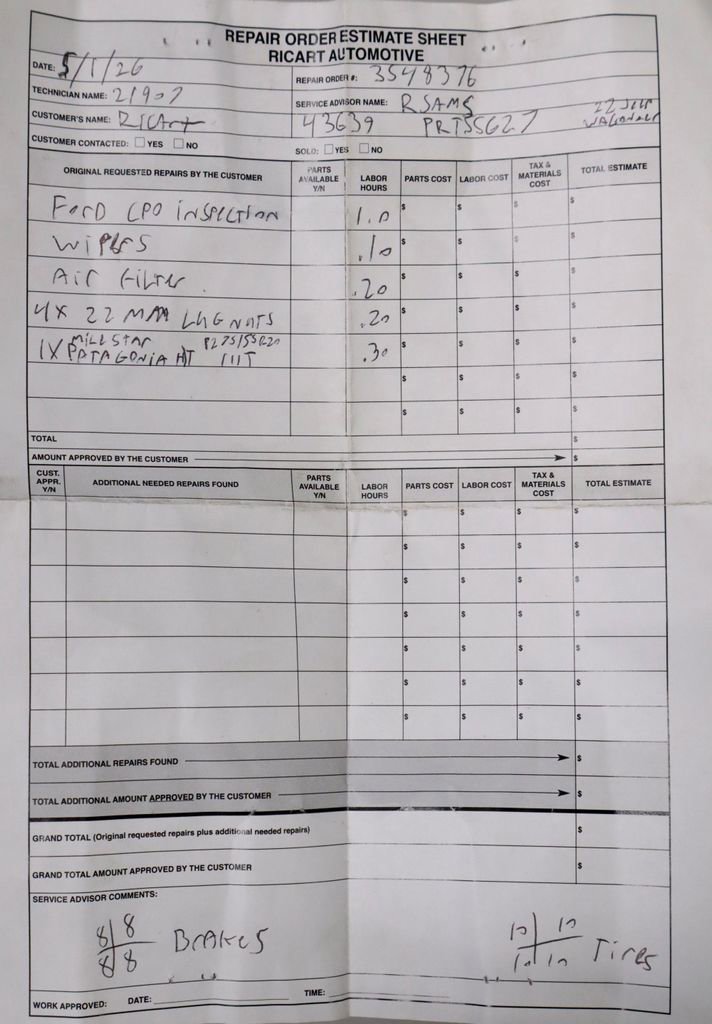 REPAIR ORDER ESTIMATE SHEET
RICART AUTOMOTIVE
DATE: 5/1/26
REPAIR ORDER #: 3548376
TECHNICIAN NAME: 21907
SERVICE ADVISOR NAME: RSAMS
CUSTOMER'S NAME: RICArt
43639 PRTSSG27
22 JEEP WAGONEER
CUSTOMER CONTACTED: YES NO
SOLD: YES NO
ORIGINAL REQUESTED REPAIRS BY THE CUSTOMER PARTS AVAILABLE Y/N LABOR HOURS PARTS COST LABOR COST TAX & MATERIALS COST TOTAL ESTIMATE
FORD CPO inSPECTION 1.0 $ $ $ $
WiPErS .10 $ $ $ $
Air FiLTEr .20 $ $ $ $
4X 22 MM LUG NUTS .20 $ $ $ $
1X MILESTAR PATAGONIA HT P275/55R20 111T .30 $ $ $ $
$ $ $ $
$ $ $ $
TOTAL $
AMOUNT APPROVED BY THE CUSTOMER $
CUST. APPR. Y/N ADDITIONAL NEEDED REPAIRS FOUND PARTS AVAILABLE Y/N LABOR HOURS PARTS COST LABOR COST TAX & MATERIALS COST TOTAL ESTIMATE
$ $ $ $
$ $ $ $
$ $ $ $
$ $ $ $
$ $ $ $
$ $ $ $
$ $ $ $
TOTAL ADDITIONAL REPAIRS FOUND $
TOTAL ADDITIONAL AMOUNT APPROVED BY THE CUSTOMER $
GRAND TOTAL (Original requested repairs plus additional needed repairs) $
GRAND TOTAL AMOUNT APPROVED BY THE CUSTOMER $
SERVICE ADVISOR COMMENTS:
8 8 10 10
BrAKES Tires
8 8 10 10
WORK APPROVED: DATE: TIME: